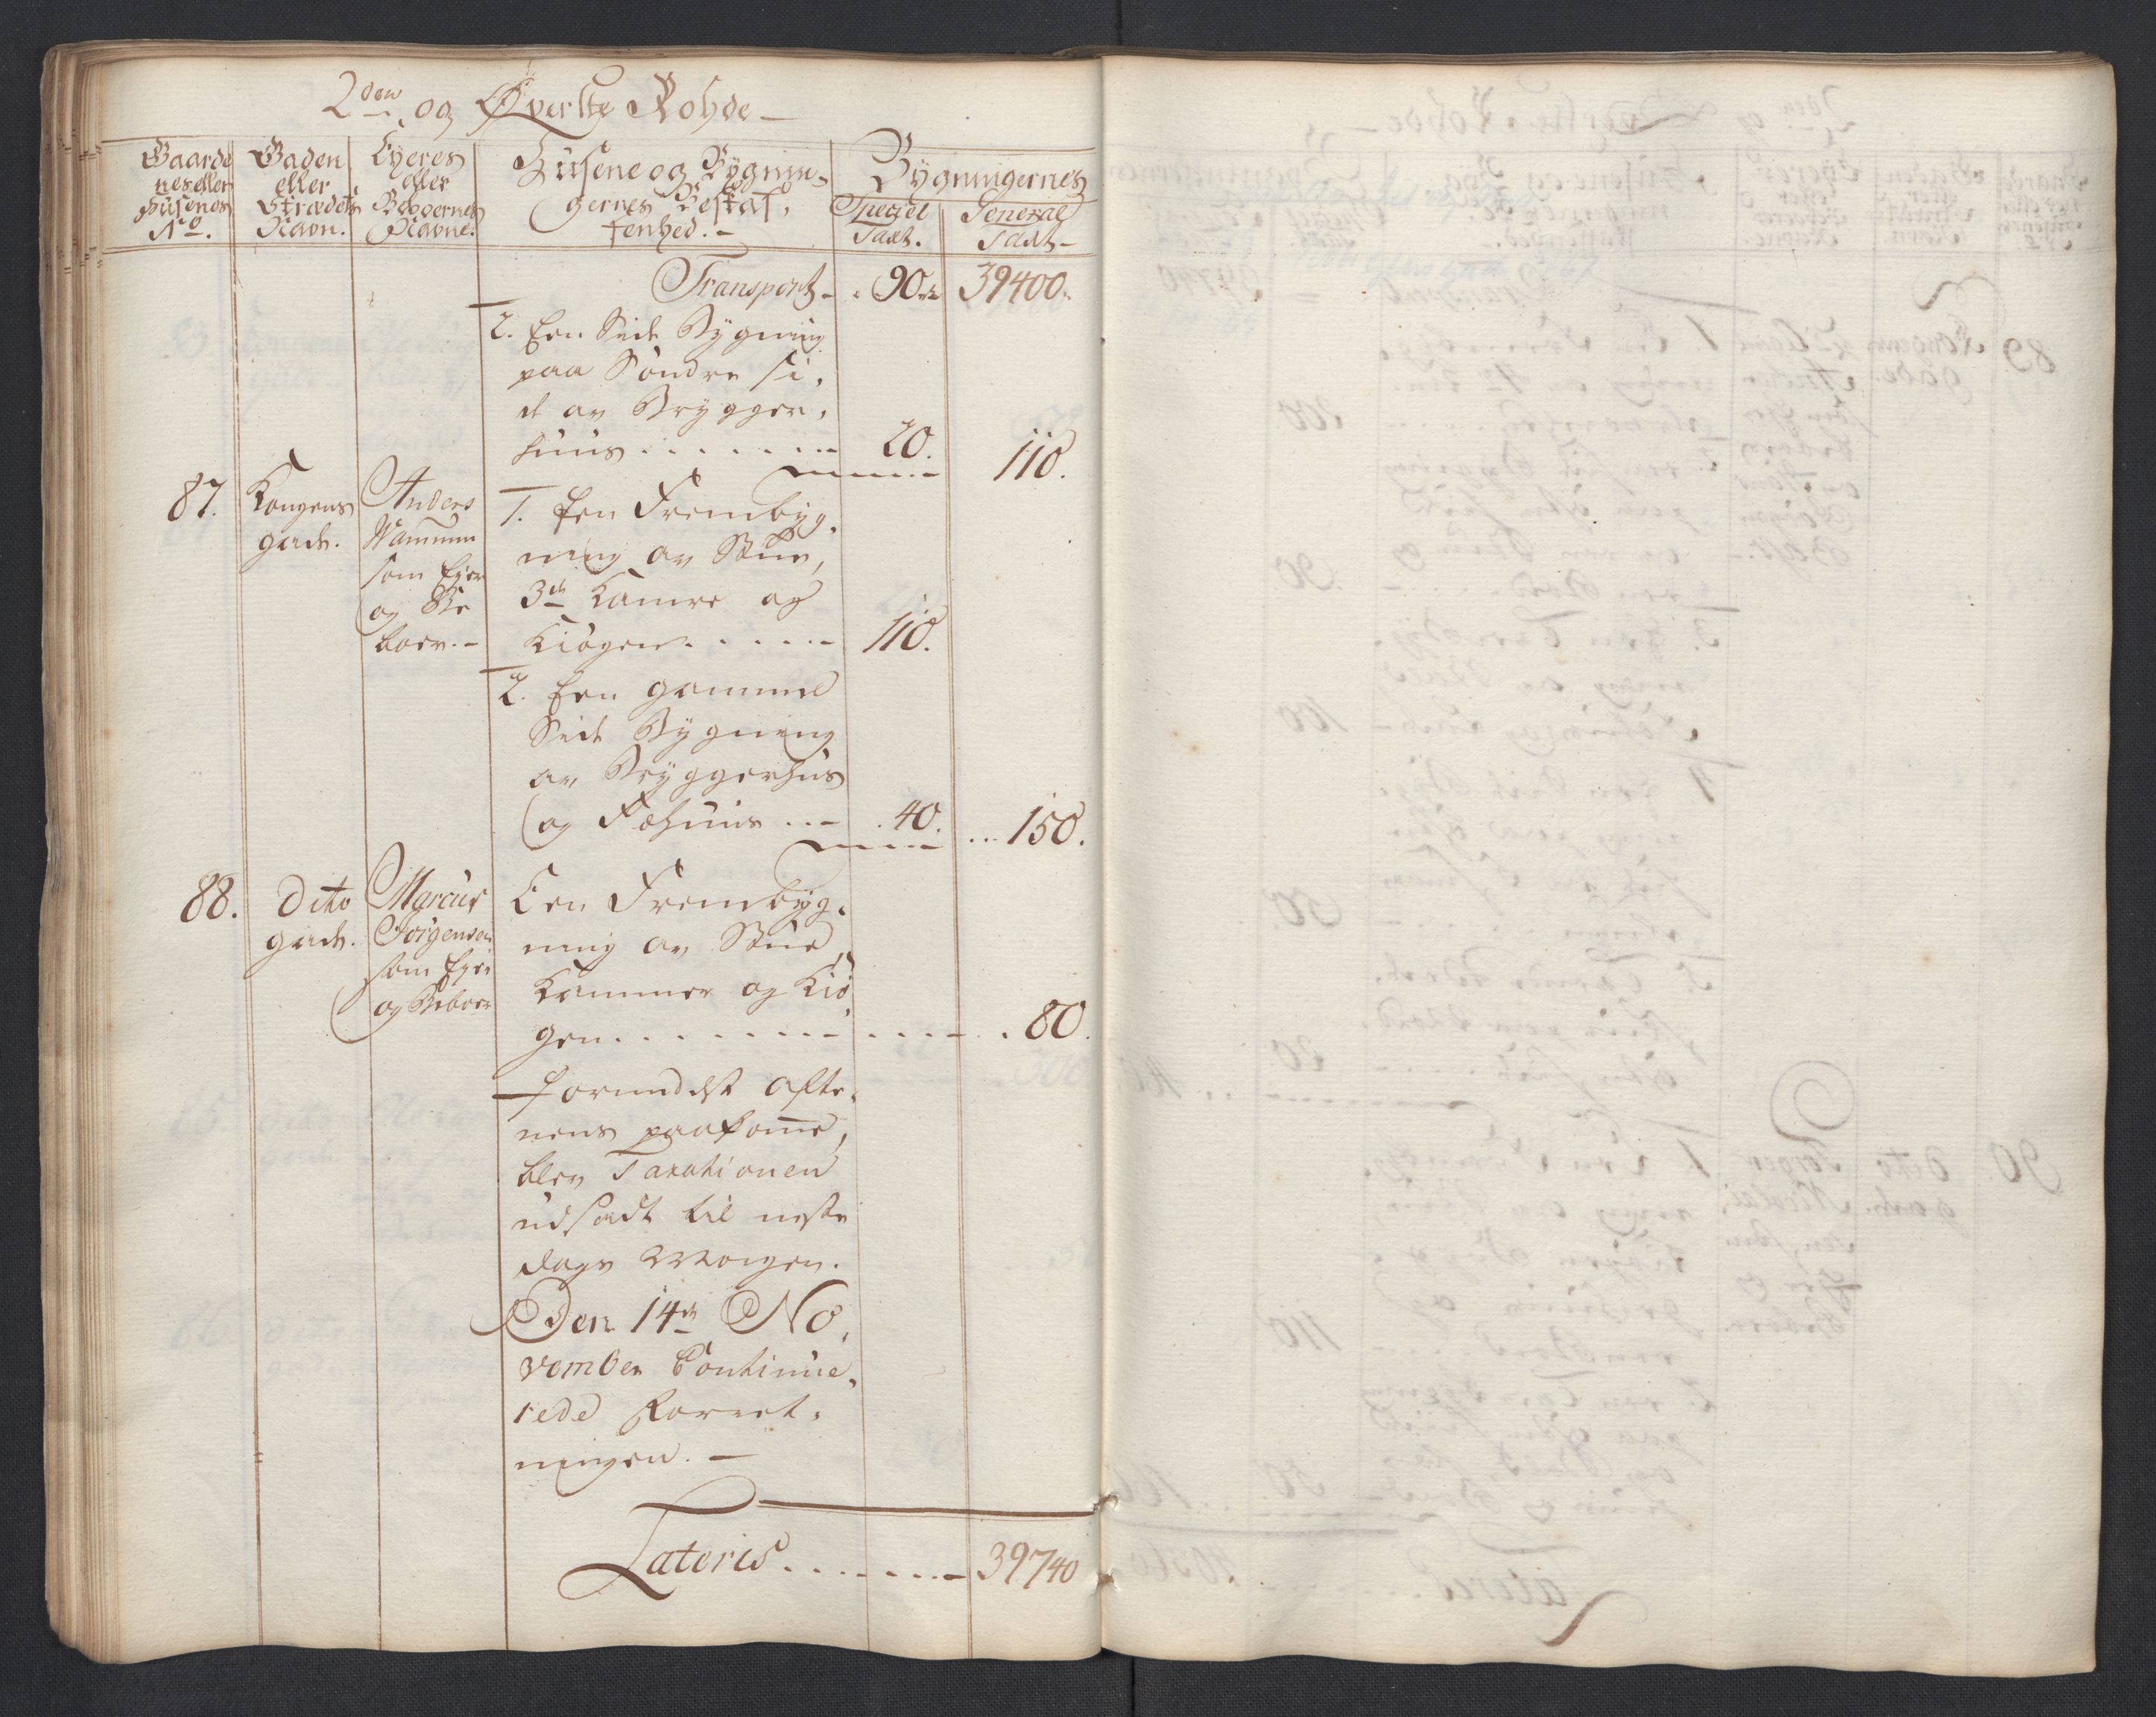 2den og Øverste Rohde
Gaarde
nes eller
Husenes
No.
Gaden
eller
Strædets
Navn.
Eyeres
eller
Beboernes
Navne.
Husene og Bygnin-
gernes Beskaf-
fenhed.
Bygningernes
Speciel
Taxt.
General
Taxt
Transport 90 39400.
2. Een Side Bygning
paa Søndre Si-
de av Brygger-
huus . . . . . . 20. 110.
87. Kongens
gade.
Anders
som Ejer
og Be
boer.
1. Een Frembyg-
ning av Stue,
3de Kamre og
Kiøgen . . . . . 110.
2. Een gammel
Side Bygning
av Bryggerhus
og Fæhuus . . . 40. . . . 150.
88. Dito
gade.
Marcus
Jørgensen
som Ejer
og Beboer
Een Frembyg-
ning av Stue
Kammer og Kiø
gen . . . . . . . . . . . 80.
formedelst Afte-
nens paakome,
blev Taxationen
udsadt til neste
Dags Morgen.
Den 14de No-
vember Continue-
rede Forret-
ningen.
Lateris . . . . . . . 39740